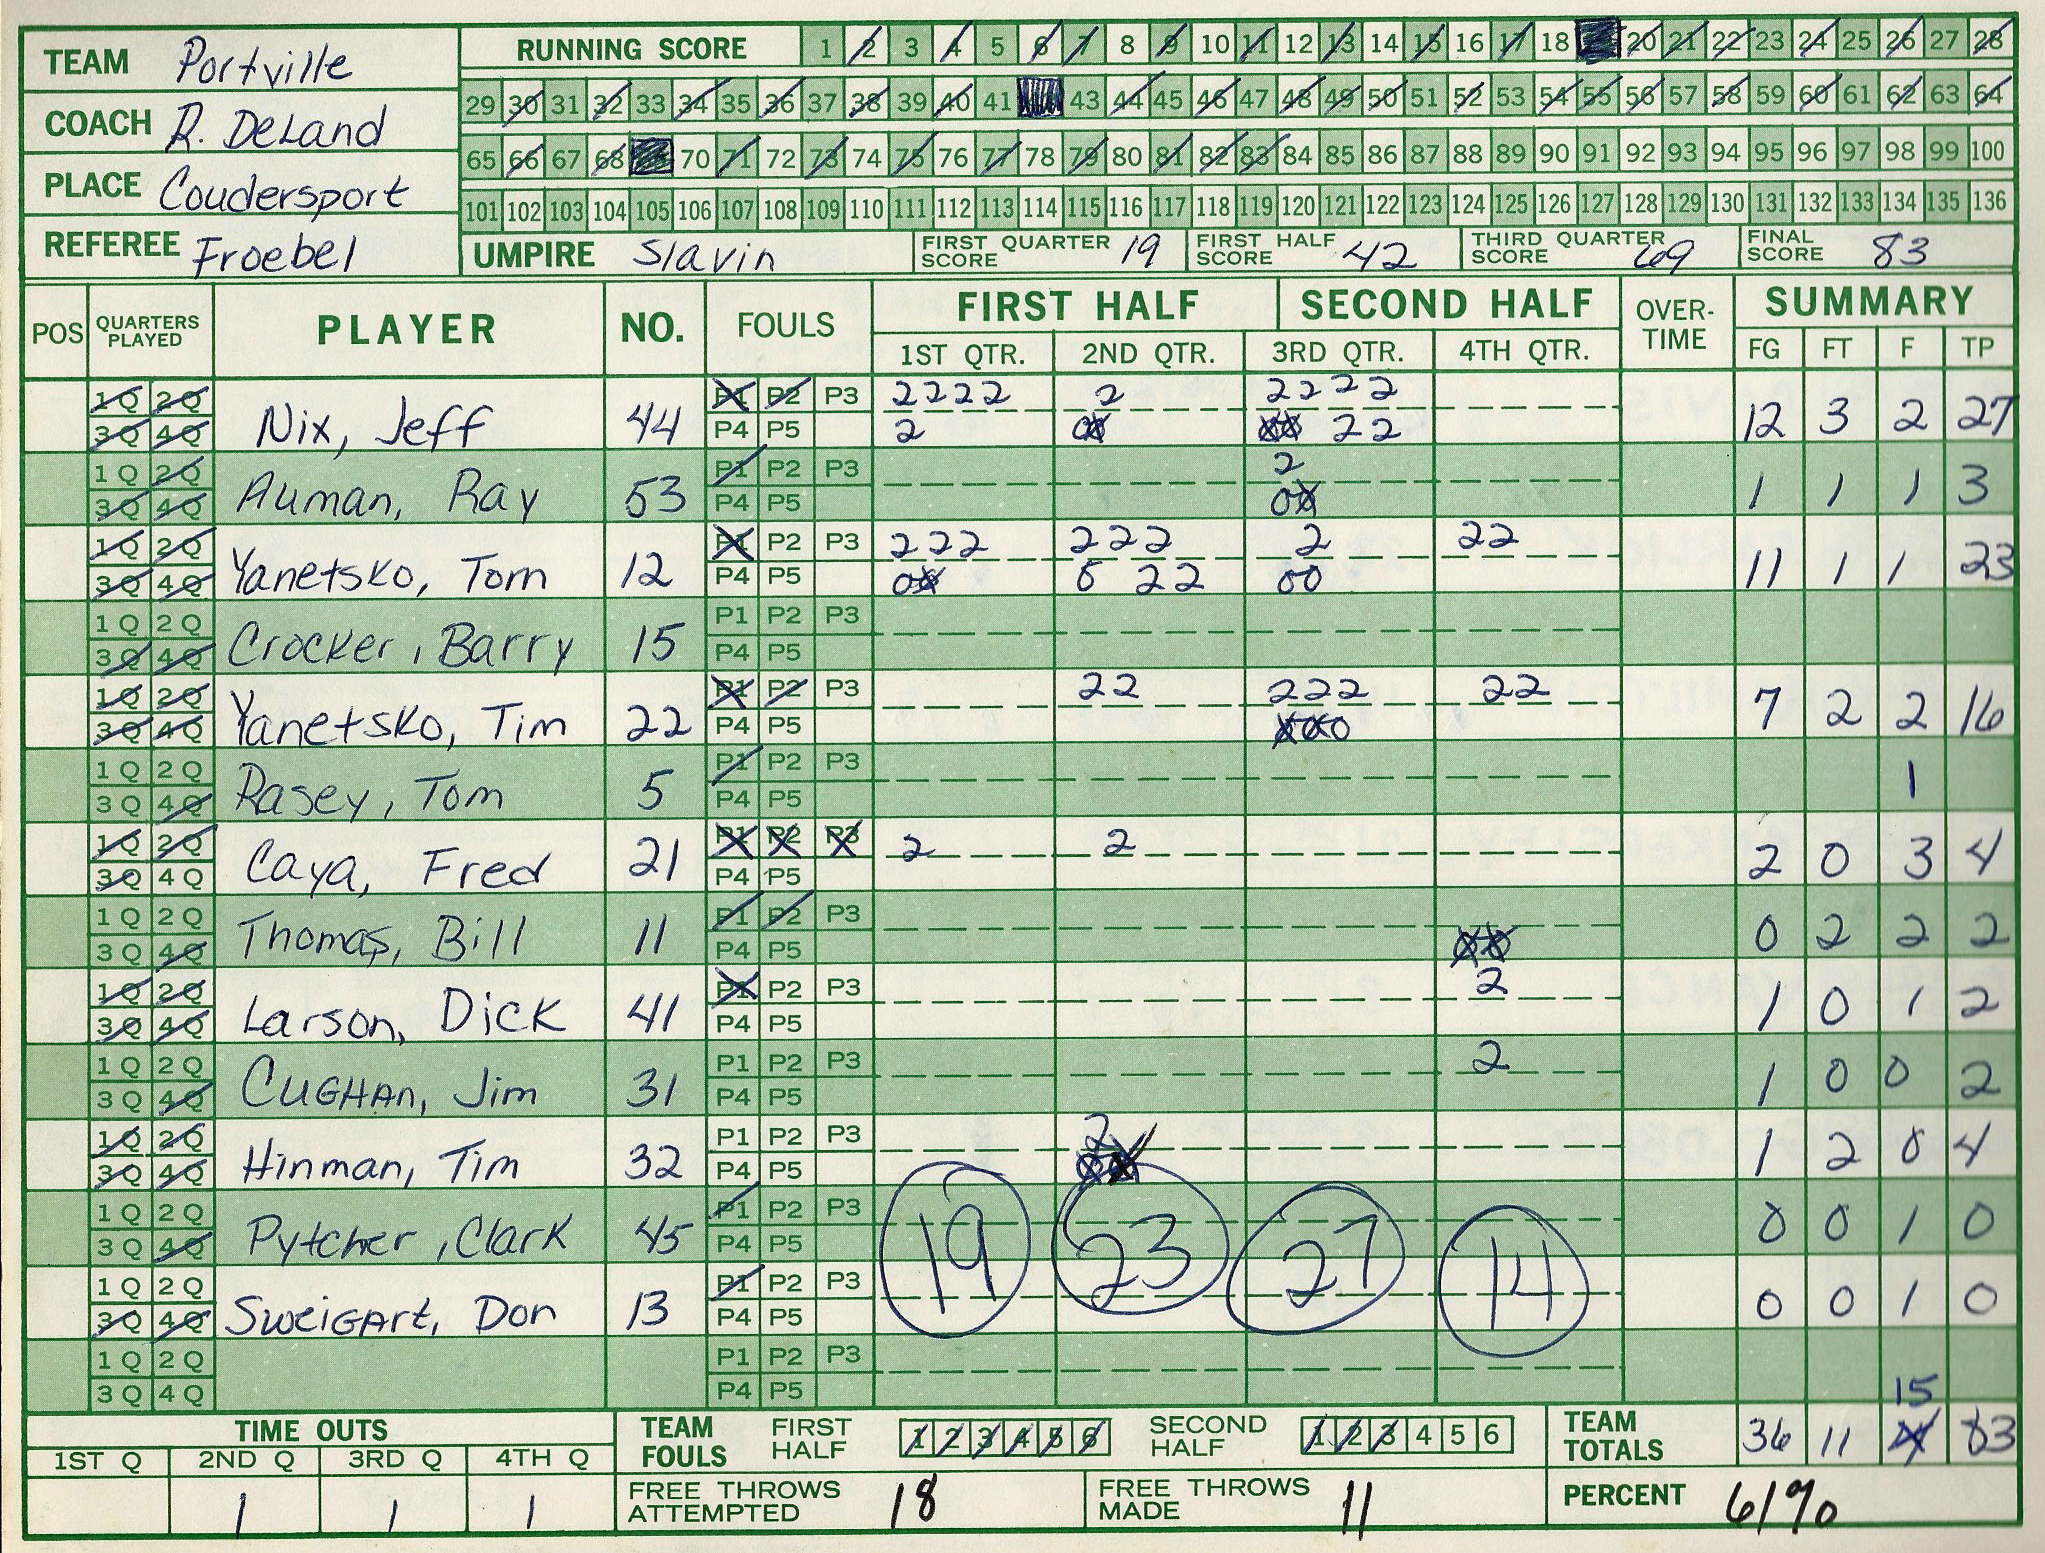 TEAM Portville
COACH R. DeLand
PLACE Coudersport
REFEREE Froebel
RUNNING SCORE 1 2 3 4 5 6 7 8 9 10 11 12 13 14 15 16 17 18 20 21 22 23 24 25 26 27 28
29 30 31 32 33 34 35 36 37 38 39 40 41 43 44 45 46 47 48 49 50 51 52 53 54 55 56 57 58 59 60 61 62 63 64
65 66 67 68 70 71 72 73 74 75 76 77 78 79 80 81 82 83 84 85 86 87 88 89 90 91 92 93 94 95 96 97 98 99 100
101 102 103 104 105 106 107 108 109 110 111 112 113 114 115 116 117 118 119 120 121 122 123 124 125 126 127 128 129 130 131 132 133 134 135 136
UMPIRE Slavin FIRST QUARTER SCORE 19 FIRST HALF SCORE 42 THIRD QUARTER SCORE 69 FINAL SCORE 83
POS QUARTERS PLAYED PLAYER NO. FOULS FIRST HALF SECOND HALF OVER-TIME SUMMARY
1ST QTR. 2ND QTR. 3RD QTR. 4TH QTR. FG FT F TP
1Q 2Q P1 P2 P3 2222 2 2222
3Q 4Q Nix, Jeff 44 P4 P5 2 0 00 22 12 3 2 27
1Q 2Q P1 P2 P3 2
3Q 4Q Auman, Ray 53 P4 P5 00 1 1 1 3
1Q 2Q P1 P2 P3 222 222 2 22
3Q 4Q Yanetsko, Tom 12 P4 P5 00 0 22 00 11 1 1 23
1Q 2Q P1 P2 P3
3Q 4Q Crocker, Barry 15 P4 P5
1Q 2Q P1 P2 P3 22 222 22
3Q 4Q Yanetsko, Tim 22 P4 P5 000 7 2 2 16
1Q 2Q P1 P2 P3
3Q 4Q Rasey, Tom 5 P4 P5 1
1Q 2Q P1 P2 P3 2 2
3Q 4Q Caya, Fred 21 P4 P5 2 0 3 4
1Q 2Q P1 P2 P3
3Q 4Q Thomas, Bill 11 P4 P5 00 0 2 2 2
1Q 2Q P1 P2 P3 2
3Q 4Q Larson, Dick 41 P4 P5 1 0 1 2
1Q 2Q P1 P2 P3 2
3Q 4Q CUGHAn, Jim 31 P4 P5 1 0 0 2
1Q 2Q P1 P2 P3 2
3Q 4Q Hinman, Tim 32 P4 P5 00 1 2 0 4
1Q 2Q P1 P2 P3
3Q 4Q Pytcher, Clark 45 P4 P5 0 0 1 0
19 23 27 14
1Q 2Q P1 P2 P3
3Q 4Q SweiGArt, Don 13 P4 P5 0 0 1 0
1Q 2Q P1 P2 P3
3Q 4Q P4 P5 15
TIME OUTS TEAM FOULS FIRST HALF 1 2 3 4 5 6 SECOND HALF 1 2 3 4 5 6 TEAM TOTALS 36 11 83
1ST Q 2ND Q 3RD Q 4TH Q
1 1 1 FREE THROWS ATTEMPTED 18 FREE THROWS MADE 11 PERCENT 61%